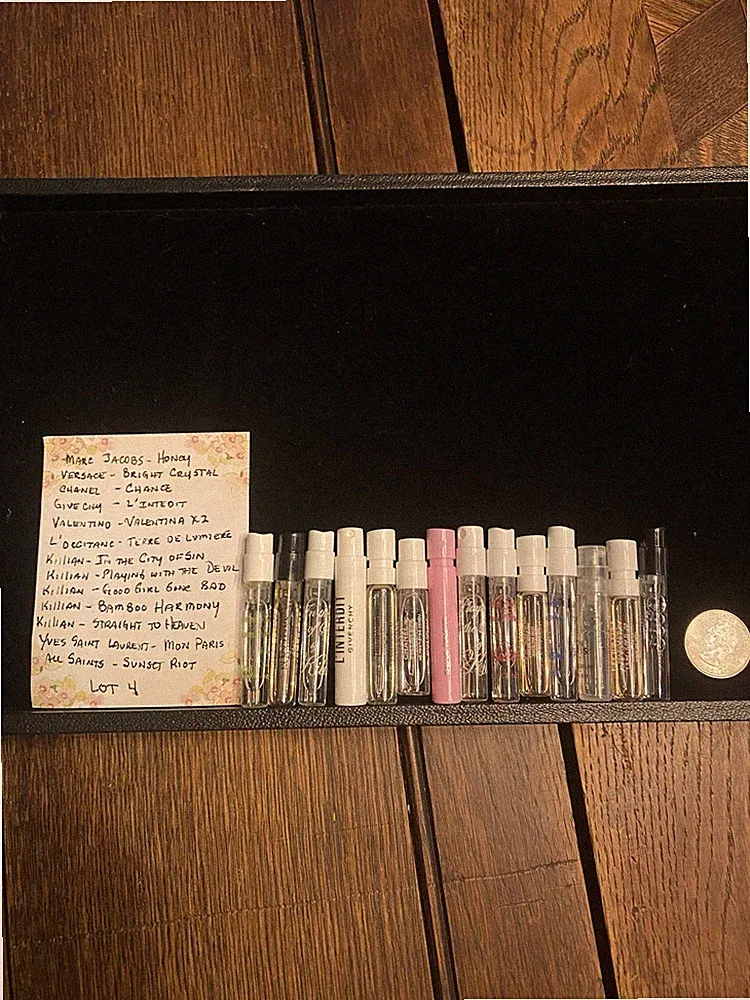 MARC JACOBS - HONEY
VERSACE - BRIGHT CRYSTAL
CHANEL - CHANCE
GIVECHY - L'INTEDIT
VALENTINO - VALENTINA X2
L'OCCITANE - TERRE DE LUMIERE
KILLIAN - IN THE CITY OF SIN
KILLIAN - PLAYING WITH THE DEVIL
KILLIAN - GOOD GIRL GONE BAD
KILLIAN - BAMBOO HARMONY
KILLIAN - STRAIGHT TO HEAVEN
YVES SAINT LAURENT - MON PARIS
ALL SAINTS - SUNSET RIOT
LOT 4
L'INTERDIT
GIVENCHY